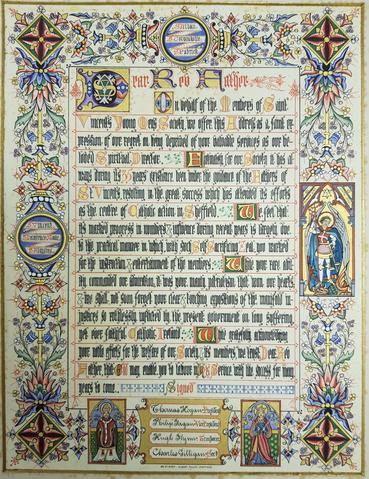 Dear Rev Father
On behalf of the Members of Saint
Vincent's Young Mens Society, we offer this Address as a faint ex-
pression of our regret on being deprived of your valuable services as our be-
loved Spiritual Director. Fortunately for our Society it has al-
ways during its years existence been under the guidance of the Fathers of
St Vincent, resulting in the great success which has attended its efforts
as the centre of Catholic action in Sheffield. We feel that
its marked progress in numbers & influence during recent years is largely due
to the practical manner in which, with such self sacrificing zeal, you worked
for the instruction & entertainment of the members. While your rare abil-
ity commanded our admiration, it was your manly patriotism that won our hearts
& we shall not soon forget your clear & touching expositions of the manifold in-
justices so ruthlessly inflicted by the present government on long suffering
yet ever faithful Catholic Ireland. While gratefully acknowledging
your noble efforts for the welfare of our Society, its members we trust, Dear Rev
Father, that God may enable you to labour in his Service with like success for many
years to come. Signed
Thomas Hogan President
Philip Fagan Vice President
Hugh Flynn Treasurer
Charles Gilligan Sec